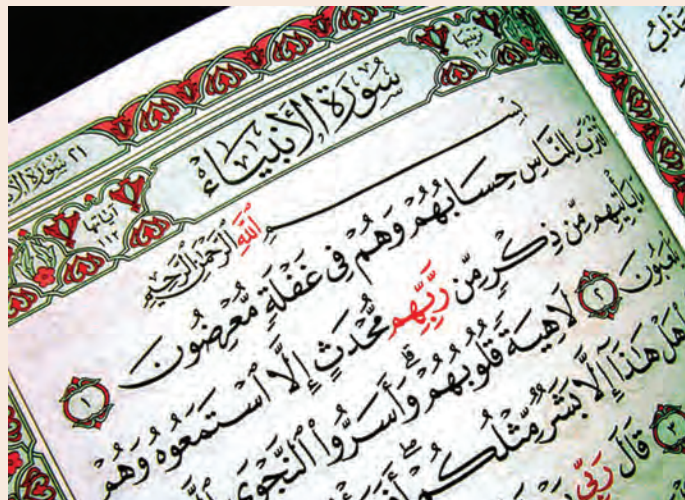 سُورَةُ الأَنبِيَاءِ
آيَاتِهَا
١١٢
٢١ سُورَةُ
بِسْمِ ٱللَّهِ ٱلرَّحْمَٰنِ ٱلرَّحِيمِ
لِلنَّاسِ حِسَابُهُمْ وَهُمْ فِى غَفْلَةٍ مُّعْرِضُونَ ١
يَأْتِيهِم مِّن ذِكْرٍ مِّن رَّبِّهِم مُّحْدَثٍ إِلَّا ٱسْتَمَعُوهُ وَهُمْ
يَلْعَبُونَ ٢ لَاهِيَةً قُلُوبُهُمْ وَأَسَرُّوا۟ ٱلنَّجْوَى
هَلْ هَٰذَآ إِلَّا بَشَرٌ مِّثْلُكُمْ
٣ قَالَ رَبِّى